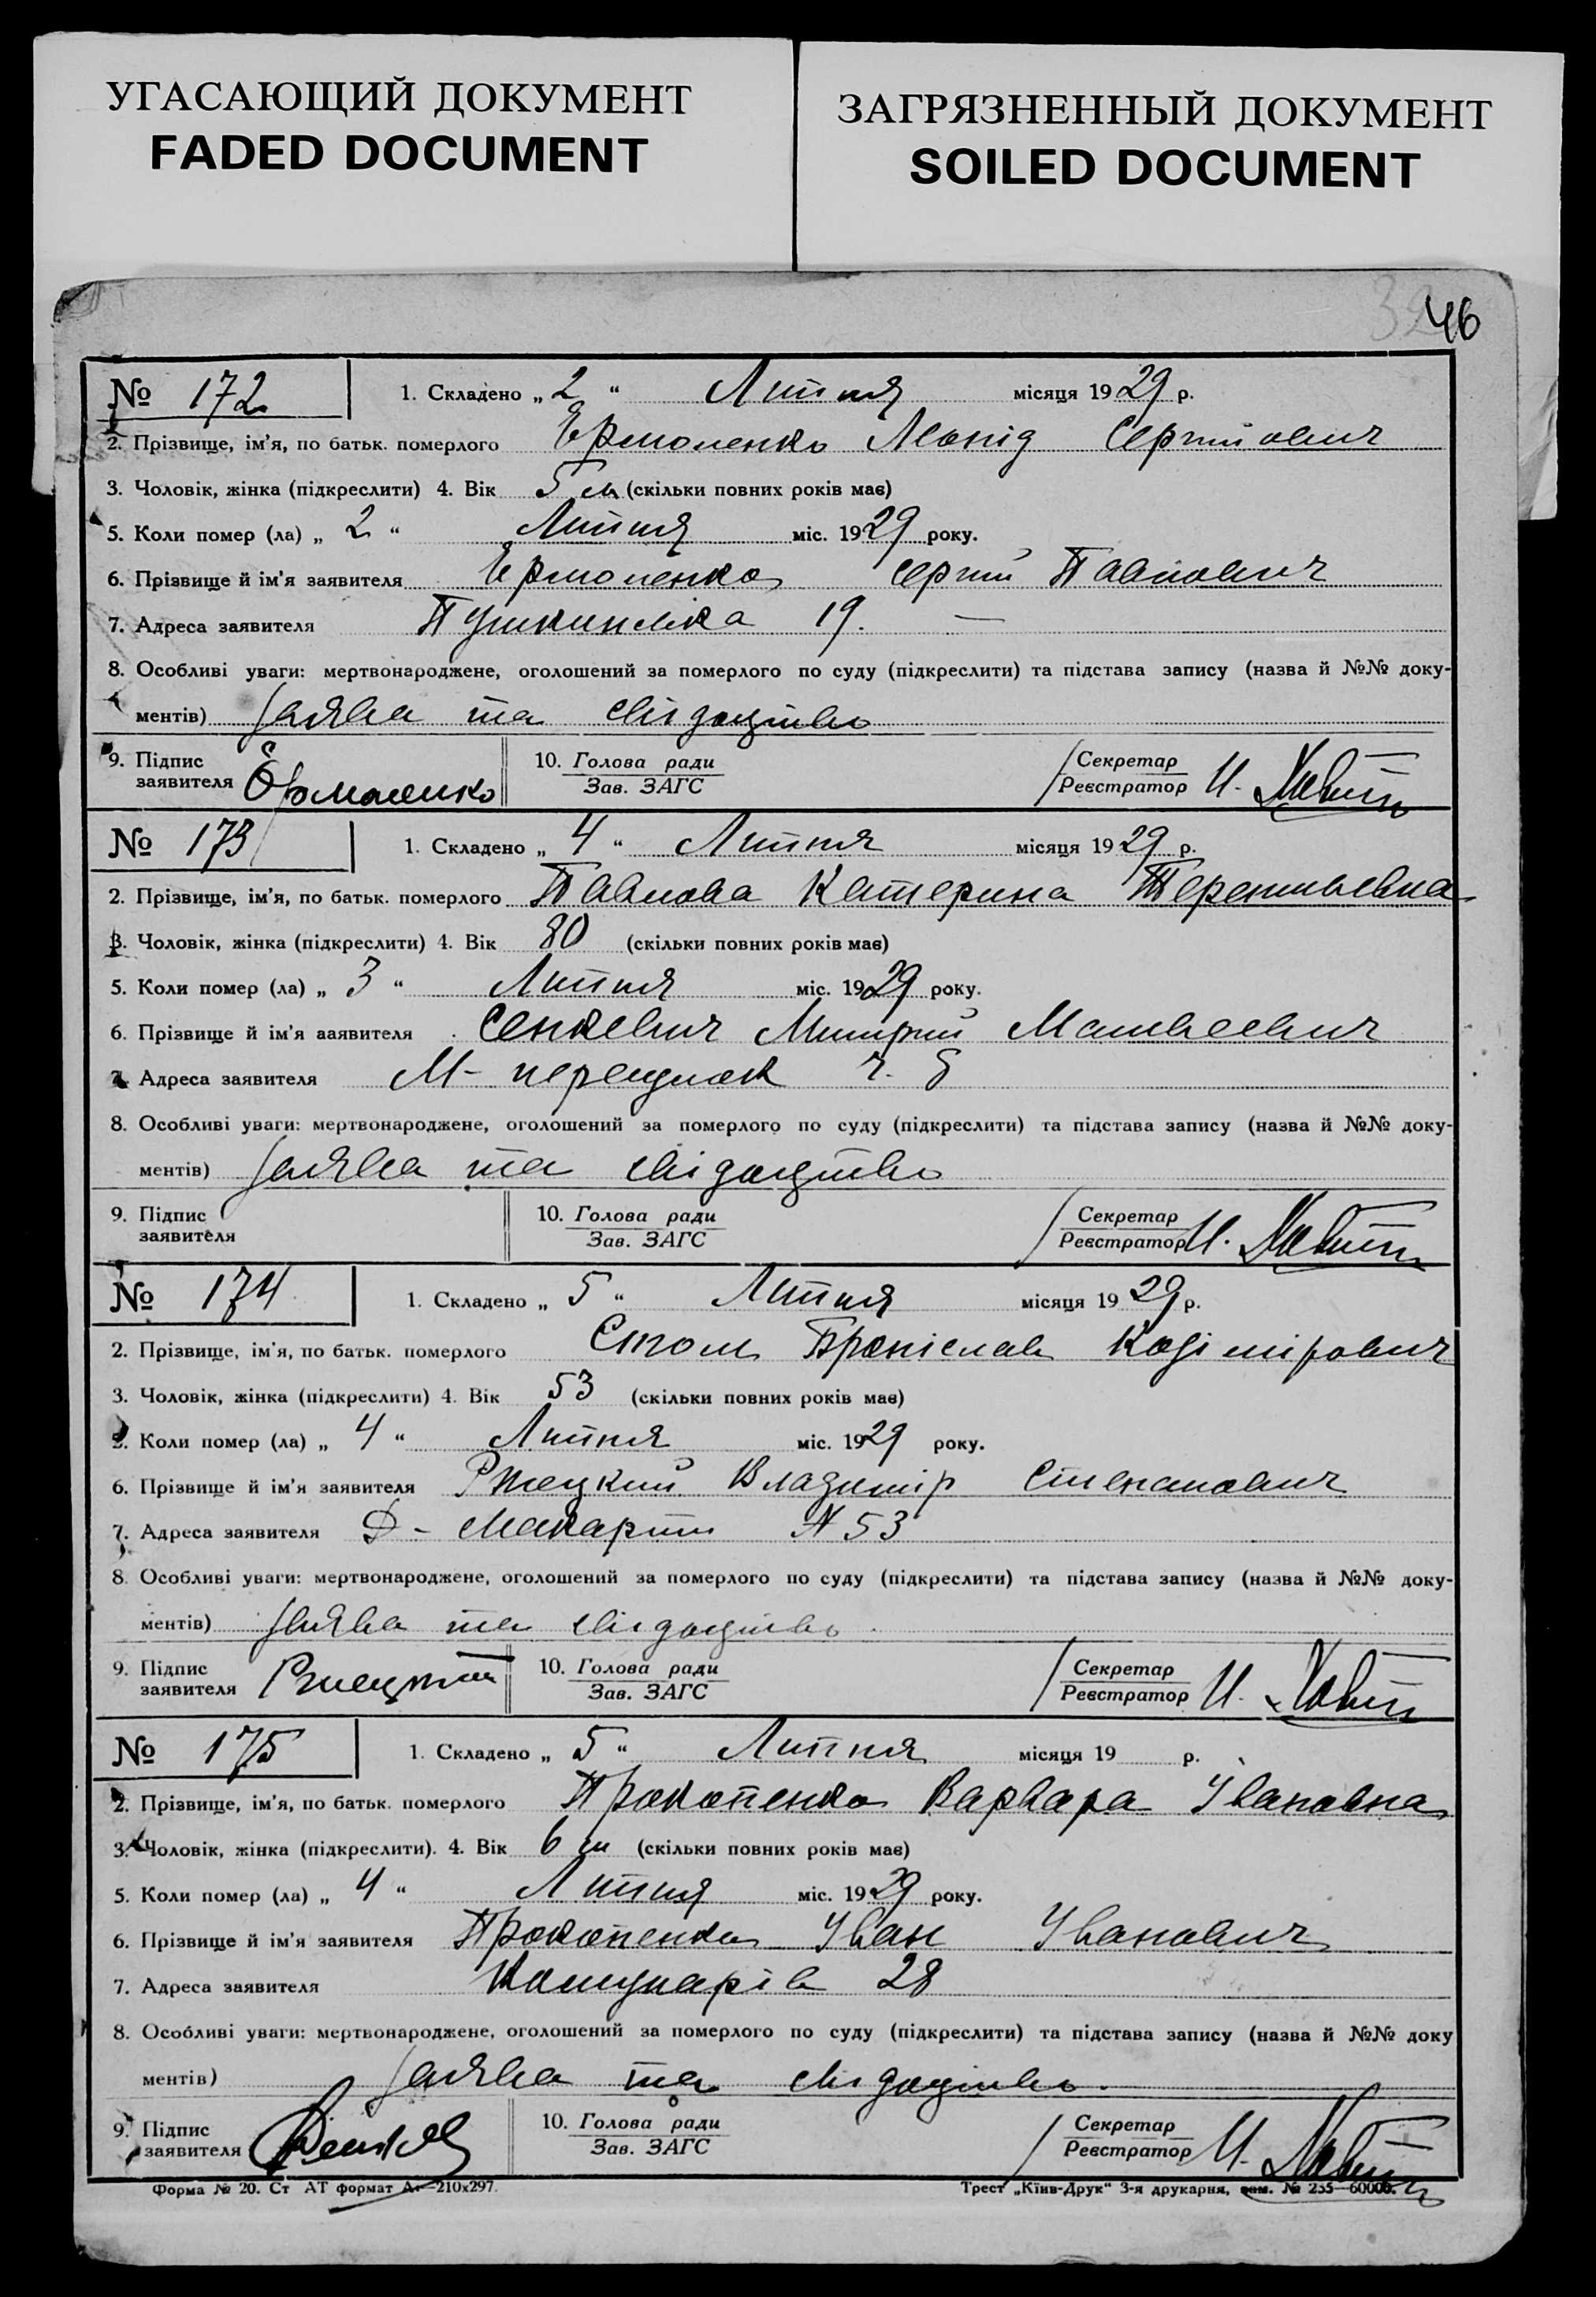 УГАСАЮЩИЙ ДОКУМЕНТ
FADED DOCUMENT
ЗАГРЯЗНЕННЫЙ ДОКУМЕНТ
SOILED DOCUMENT
46
№ 172 1. Складено „ 2 “ Липня місяця 1929 р.
2. Прізвище, ім'я, по батьк. померлого Ермоленко Леонід Сергійович
3. Чоловік, жінка (підкреслити) 4. Вік 5 м (скільки повних років має)
5. Коли помер (ла) „ 2 “ Липня міс. 1929 року.
6. Прізвище й ім'я заявителя Ермоленко Сергий Павлович
7. Адреса заявителя Пушкинська 19. —
8. Особливі уваги: мертвонароджене, оголошений за померлого по суду (підкреслити) та підстава запису (назва й №№ доку-
ментів) Заява та свідоцтво
9. Підпис заявителя Ермоленко 10. Голова ради Зав. ЗАГС Секретар Реєстратор И.
№ 173 1. Складено „ 4 “ Липня місяця 1929 р.
2. Прізвище, ім'я, по батьк. померлого Павлова Катерина Терентьевна
3. Чоловік, жінка (підкреслити) 4. Вік 80 (скільки повних років має)
5. Коли помер (ла) „ 3 “ Липня міс. 1929 року.
6. Прізвище й ім'я заявителя Сенкевич Митрий Матвеевич
7. Адреса заявителя М- переулок ч. 8
8. Особливі уваги: мертвонароджене, оголошений за померлого по суду (підкреслити) та підстава запису (назва й №№ доку-
ментів) Заява та свідоцтво
9. Підпис заявителя 10. Голова ради Зав. ЗАГС Секретар Реєстратор И.
№ 174 1. Складено „ 5 “ Липня місяця 1929 р.
2. Прізвище, ім'я, по батьк. померлого Броніслав Козімірович
3. Чоловік, жінка (підкреслити) 4. Вік 53 (скільки повних років має)
5. Коли помер (ла) „ 4 “ Липня міс. 1929 року.
6. Прізвище й ім'я заявителя Ржецкий Владимір Степанович
7. Адреса заявителя Д- Макарти N 53
8. Особливі уваги: мертвонароджене, оголошений за померлого по суду (підкреслити) та підстава запису (назва й №№ доку-
ментів) Заява та свідоцтво
9. Підпис заявителя Ржецкий 10. Голова ради Зав. ЗАГС Секретар Реєстратор И.
№ 175 1. Складено „ 5 “ Липня місяця 19 р.
2. Прізвище, ім'я, по батьк. померлого Прокопенко Варвара Івановна
3. Чоловік, жінка (підкреслити). 4. Вік 6 м (скільки повних років має)
5. Коли помер (ла) „ 4 “ Липня міс. 1929 року.
6. Прізвище й ім'я заявителя Прокопенко Іван Іванович
7. Адреса заявителя Комунарів 28
8. Особливі уваги: мертвонароджене, оголошений за померлого по суду (підкреслити) та підстава запису (назва й №№ доку
ментів) Заява та свідоцтво
9. Підпис заявителя 10. Голова ради Зав. ЗАГС Секретар Реєстратор И.
Форма № 20. Ст АТ формат А4—210х297. Трест „Київ-Друк“ 3-я друкарня, зам. № 255—60000.